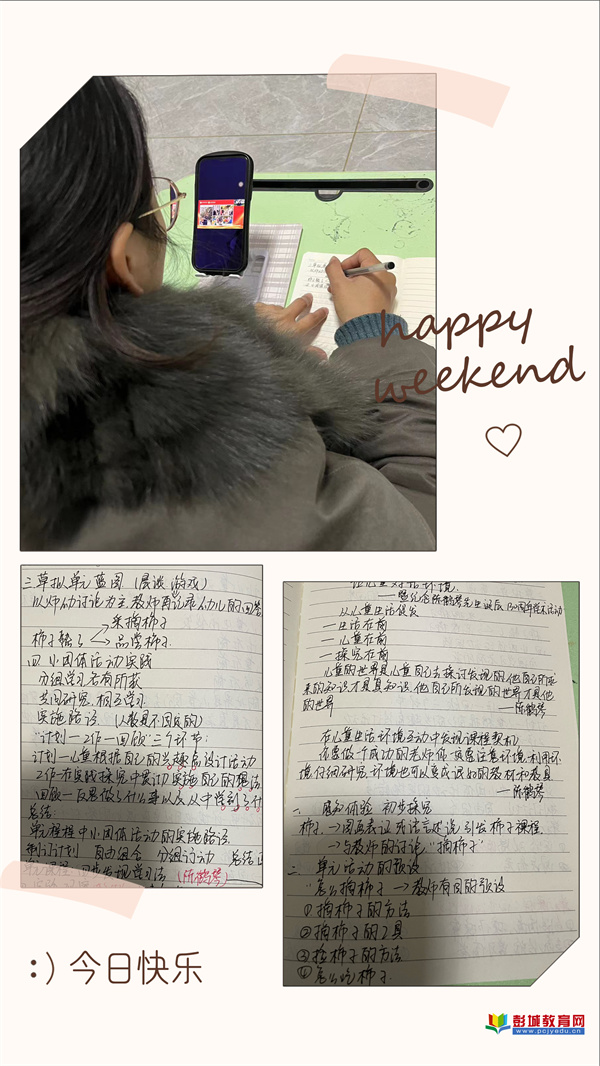 happy
weekend
三.草拟单元蓝图（晨谈 游戏）
以师幼讨论为主,教师再记录幼儿的回答
采摘柿子
柿子熟了
品尝柿子.
四.小团体活动实践
分组学习各有所获
共同研究.相互学习
实施路径.
"计划一工作一回顾"三个环节:
计划一儿童根据自己的兴趣点设计活动
工作-在实践探究中真切实施自己的想法
回顾一反思做了什么事以及从中学到了什
总结.
单元课程中小团体活动的实施路径
制订计划 自由组合 分组行动 总结
(陈鹤琴)
让儿童对话环境.
——暨纪念陈鹤琴先生诞辰130周年系活动
从儿童生活使发
一生活在前
一儿童在前
一探究在前
儿童的世界是儿童自己去探讨发现的,他自己所求
来的知识才是真知识,他自己所发现的世界才是他
的世界
——陈鹤琴
在儿童生活环境互动中发现课程契机
你要做个成功的老师你一须要注意环境.利用环
境,
环境也可以变成很好的教材和教具
——陈鹤琴
一、感知体验 初步探究
柿子→
引发柿子课程
→与教师的讨论"摘柿子"
二、单元活动的预设
"怎么摘柿子"→教师有目的预设
①摘柿子的方法
②摘柿子的工具
③捡柿子的方法
④怎么吃柿子.
:) 今日快乐
彭城教育网
www.pcjyedu.cn